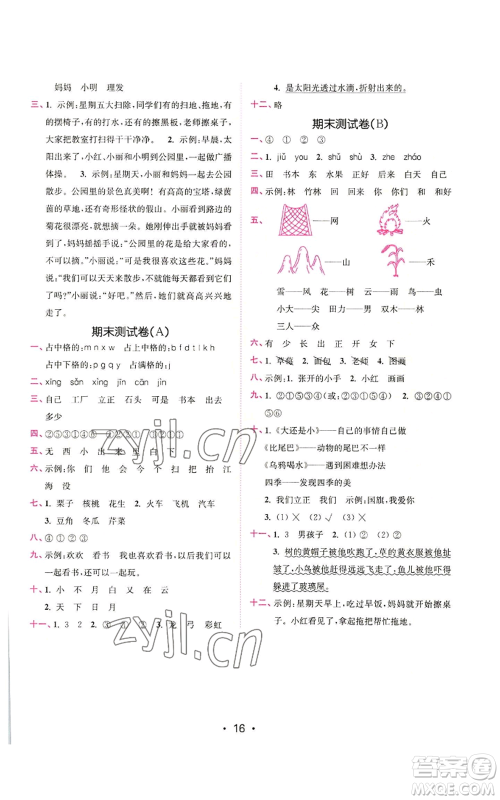 妈妈 小明 理发
三、1. 示例:星期五大扫除,同学们有的扫地,有
的摆椅子,有的打水,还有的擦黑板,老师擦桌子,
大家把教室打扫得干干净净。 2. 示例:早晨,太
阳出来了,小红、小丽和小明到公园里一起做广播
体操。 3. 示例:星期天,妈妈带着小红和小丽去公
园散步。公园景色真美啊!有高高的宝塔,绿茵
茵的草地,还有奇形怪状的假山。突然,小丽看到
菊花很漂亮,就想摘一朵。她刚伸出手,就被妈妈
发现了。妈妈摇摇手说:“公园里的花是给大家看
的,不可以摘。”小丽说:“可是我很喜欢它。”妈妈
说:“我们可以天天来散步,这样就可以天天看到
它啦。”小丽说:“好吧。”她们最后高高兴兴地
走了。
期末测试卷(A)
一、占中格的:nmxw 占上中格的:bfdtlkh
占中下格的:pgqy 占满格的:j
二、xíng sǎn xìng jīn cān jìn
三、自己 工厂 立正 石头 可是 书本 出去
多少
四、②⑤③①④⑤ ②⑤①③④
五、无 西 小 出 来 里 白 下
六、示例:你 们 他 会 个 今 扫 把 拾 江
海 没
七、1. 栗子 核桃 花生 2. 火车 飞机 汽车
3. 豆角 冬瓜 芹菜
八、④③①②⑤
九、示例:欢欢 看书 我也喜欢看书,我还喜欢
和他们一起玩。
十、1. 小 不 月 白 又 在 云
2. 天 下 日 月
十一、1. 3 2 弓 彩虹
4. 是太阳光透过水滴,折射出来的。
十二、略
期末测试卷(B)
一、④ ① ② ③
二、1. jiǔ you 2. shū shù 3. zhe zháo
三、田 书本 东 水果 正好 后来 白天 自己
四、示例:林 竹林 回 回来 你 你们 和 和好
五、
——网
——火
——山
——禾
雪——风 风——树 树——鸟
鸟——虫 虫——花 花——叶
小大——尖 田力——男 双木——林
三人——众
六、有 少 长 出 正 开 女 下
七、1. 草莓 2. 面包 3. 草莓 面包
八、示例:1. 张开的小手 2. 小红 画画
九、1. ②①③⑤④ 2. ③⑥④②①
⑤⑥
十、1. 《大还是小》——自己的事情自己做
《比尾巴》——动物的尾巴不一样
《乌鸦喝水》——遇到困难想办法
四季——赞美四季
2. 我们立正 示例:国旗,我爱你
3. (1)× (2)√ (3)×
十一、1. 3 男孩子 2. (1)① (2)②
3. 树的黄帽子被他吹跑了,草的黄衣服被他
扯破了,小鸟被他赶得飞走了,鱼儿被他吓得
躲进了玻璃屋。
十二、示例:星期天早上,吃过早饭,妈妈就开始擦桌
子。小红连忙拿起拖把帮忙拖地。
zyjl.cn
zyjl.cn
• 16 •